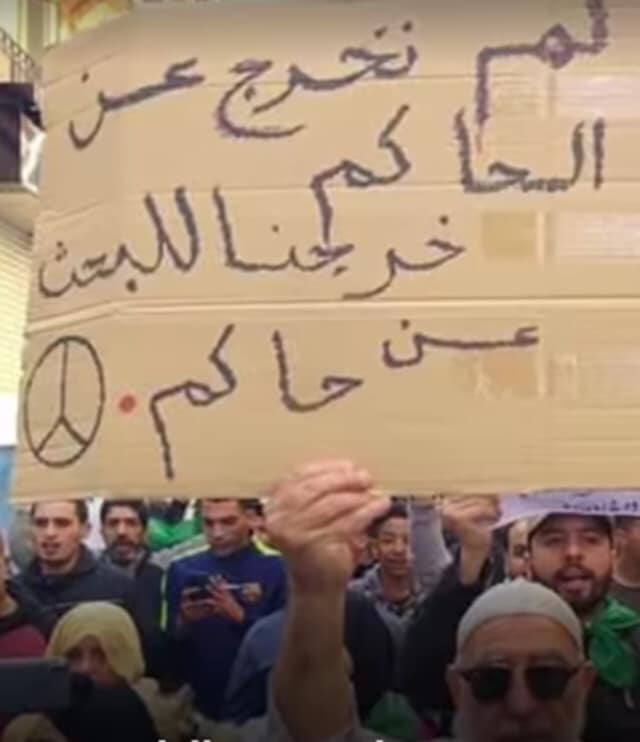 لم نخرج عن
الحاكم
خرجنا للبحث
عن حاكم.